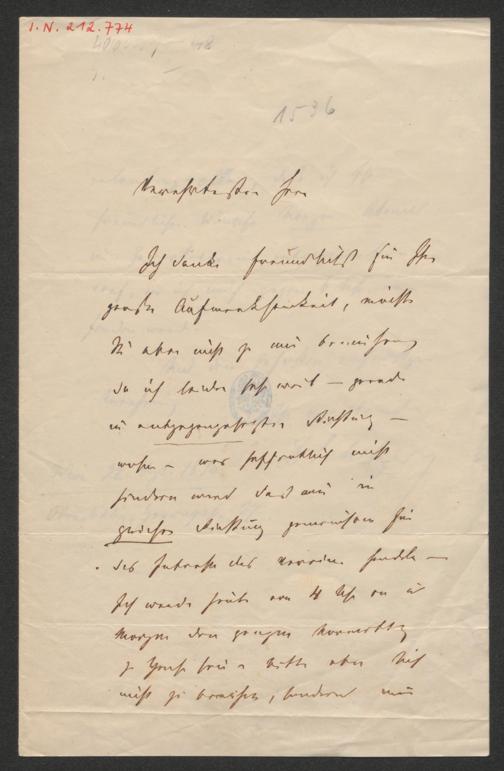 I.N. 212.774
1536
Verehrtester Herr
Ich danke freundlichst für Ihre
große Aufmerksamkeit, möchte
Sie aber nicht zu mir bemühen,
da ich leider sehr weit – gerade
in entgegengesetzter Richtung –
wohne – was hoffentlich nicht
hindern wird daß wir in
gleicher Richtung gemeinsam für
das Interesse des Vereines handeln –
Ich werde heute von 4 Uhr an u
Morgen den ganzen Vormittag
zu Hause sein u bitte aber Sich
nicht zu bemühen, sondern mir